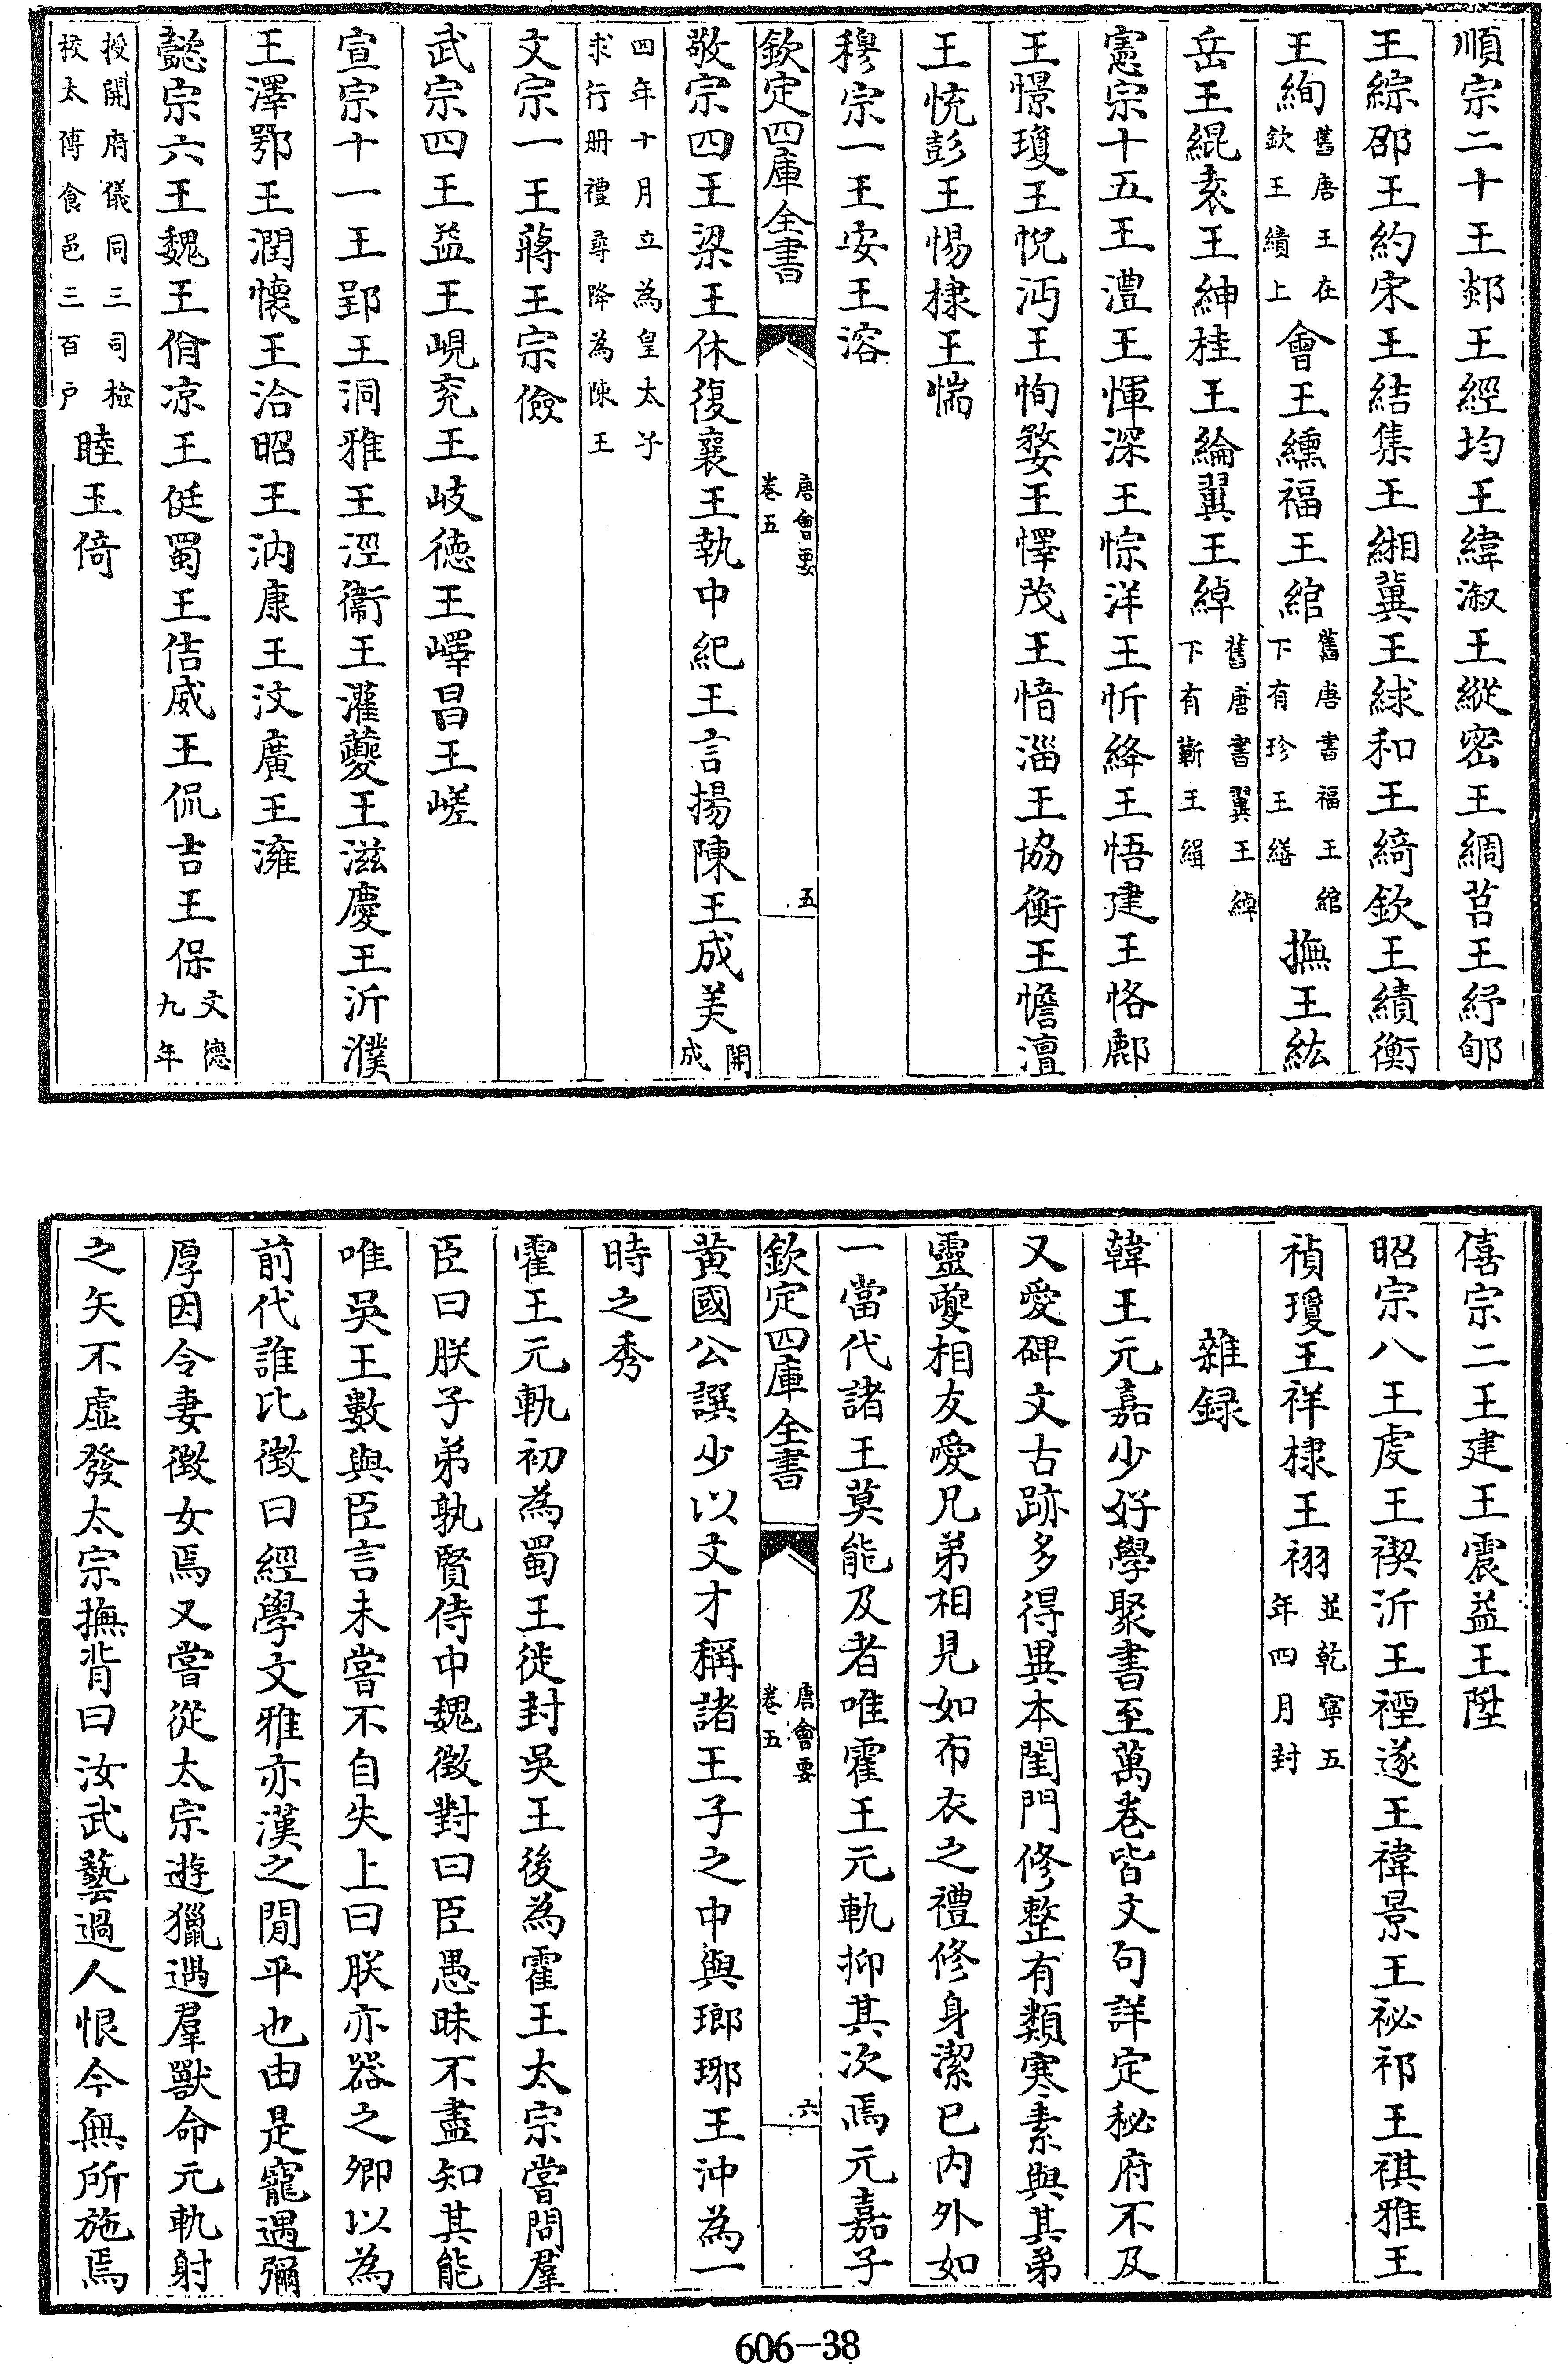 順宗二十王郯王經均王緯溆王縱密王綢莒王紓郇
王綜邵王約宋王結集王緗冀王絿和王綺欽王績衡
王絢舊唐王在欽王績上會王纁福王綰舊唐書福王綰下有珍王繕撫王紘
岳王緄袁王紳桂王綸翼王綽舊唐書翼王綽下有蘄王緝
憲宗十五王澧王惲深王悰洋王忻絳王悟建王恪鄜
王憬瓊王悅沔王恂婺王懌茂王愔淄王協衡王憺澶
王㤝彭王惕棣王惴
穆宗一王安王溶
欽定四庫全書
唐會要
卷五
五
敬宗四王梁王休復襄王執中紀王言揚陳王成美開成
四年十月立為皇太子求行册禮尋降為陳王
文宗一王蔣王宗儉
武宗四王益王峴兖王岐德王嶧昌王嵯
宣宗十一王郢王洞雅王涇衞王灌夔王滋慶王沂濮
王澤鄂王潤懷王洽昭王汭康王汶廣王澭
懿宗六王魏王佾凉王侹蜀王佶威王侃吉王保文德九年
授開府儀同三司檢校太傅食邑三百户睦王倚
僖宗二王建王震益王陞
昭宗八王䖍王禊沂王禋遂王禕景王祕祁王祺雅王
禎瓊王祥棣王祤並乾寧五年四月封
雜録
韓王元嘉少好學聚書至萬卷皆文句詳定秘府不及
又愛碑文古跡多得異本閨門修整有類寒素與其弟
靈夔相友愛兄弟相見如布衣之禮修身潔已内外如
一當代諸王莫能及者唯霍王元軌抑其次焉元嘉子
欽定四庫全書
唐會要
卷五
六
黃國公譔少以文才稱諸王子之中與瑯琊王沖為一
時之秀
霍王元軌初為蜀王徙封吳王後為霍王太宗嘗問羣
臣曰朕子弟孰賢侍中魏徵對曰臣愚昧不盡知其能
唯吳王數與臣言未嘗不自失上曰朕亦器之卿以為
前代誰比徵曰經學文雅亦漢之閒平也由是寵遇彌
厚因令妻徵女焉又嘗從太宗遊獵遇羣獸命元軌射
之矢不虛發太宗撫背曰汝武藝過人恨今無所施焉
606-38